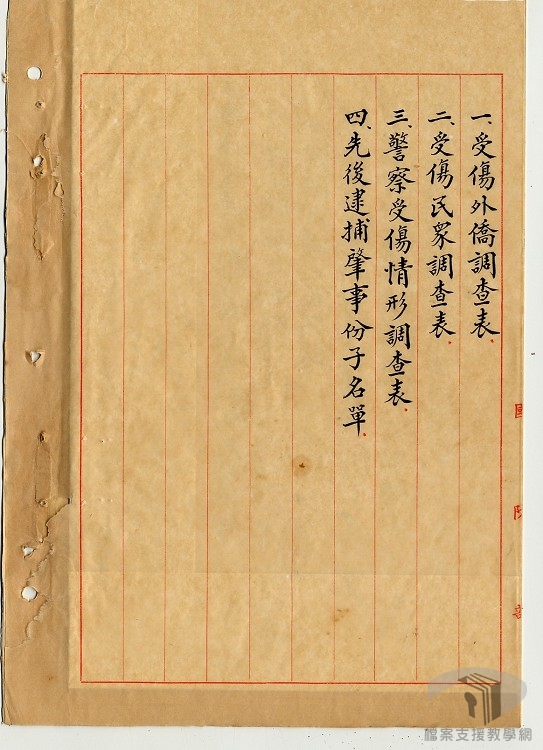 一、受傷外僑調查表.
二、受傷民眾調查表.
三、警察受傷情形調查表.
四、先後逮捕肇事份子名單.
國
防
部
檔案支援教學網